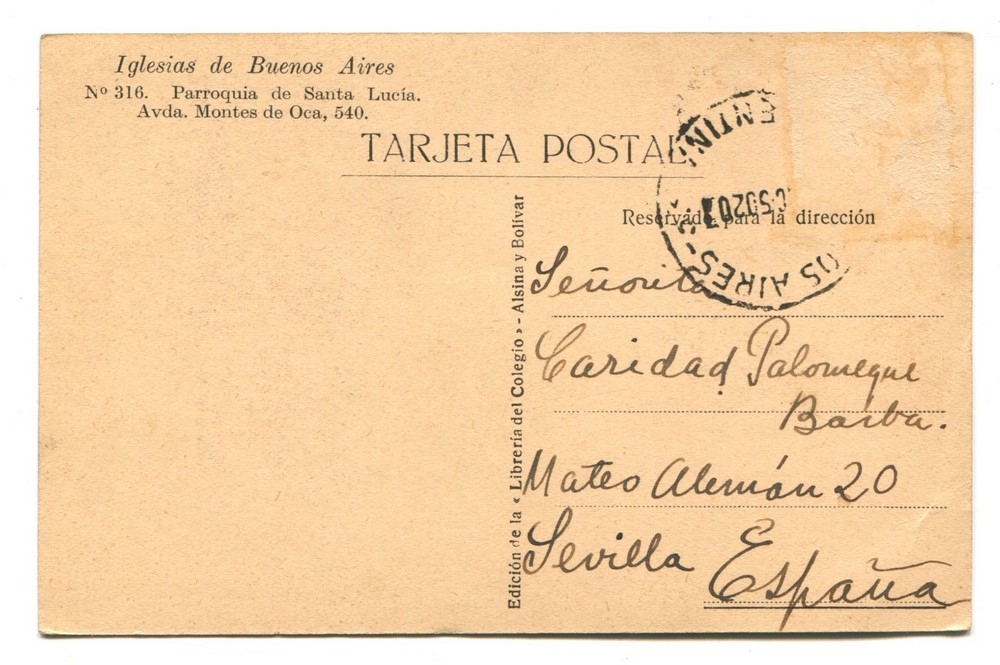 Iglesias de Buenos Aires
Nº 316. Parroquia de Santa Lucía.
Avda. Montes de Oca, 540.
TARJETA POSTAL
Reservado para la dirección
Edición de la « Librería del Colegio » - Alsina y Bolívar
Señorita
Caridad Palomeque
Barba.
Mateo Alemán 20
Sevilla España
OS AIRES